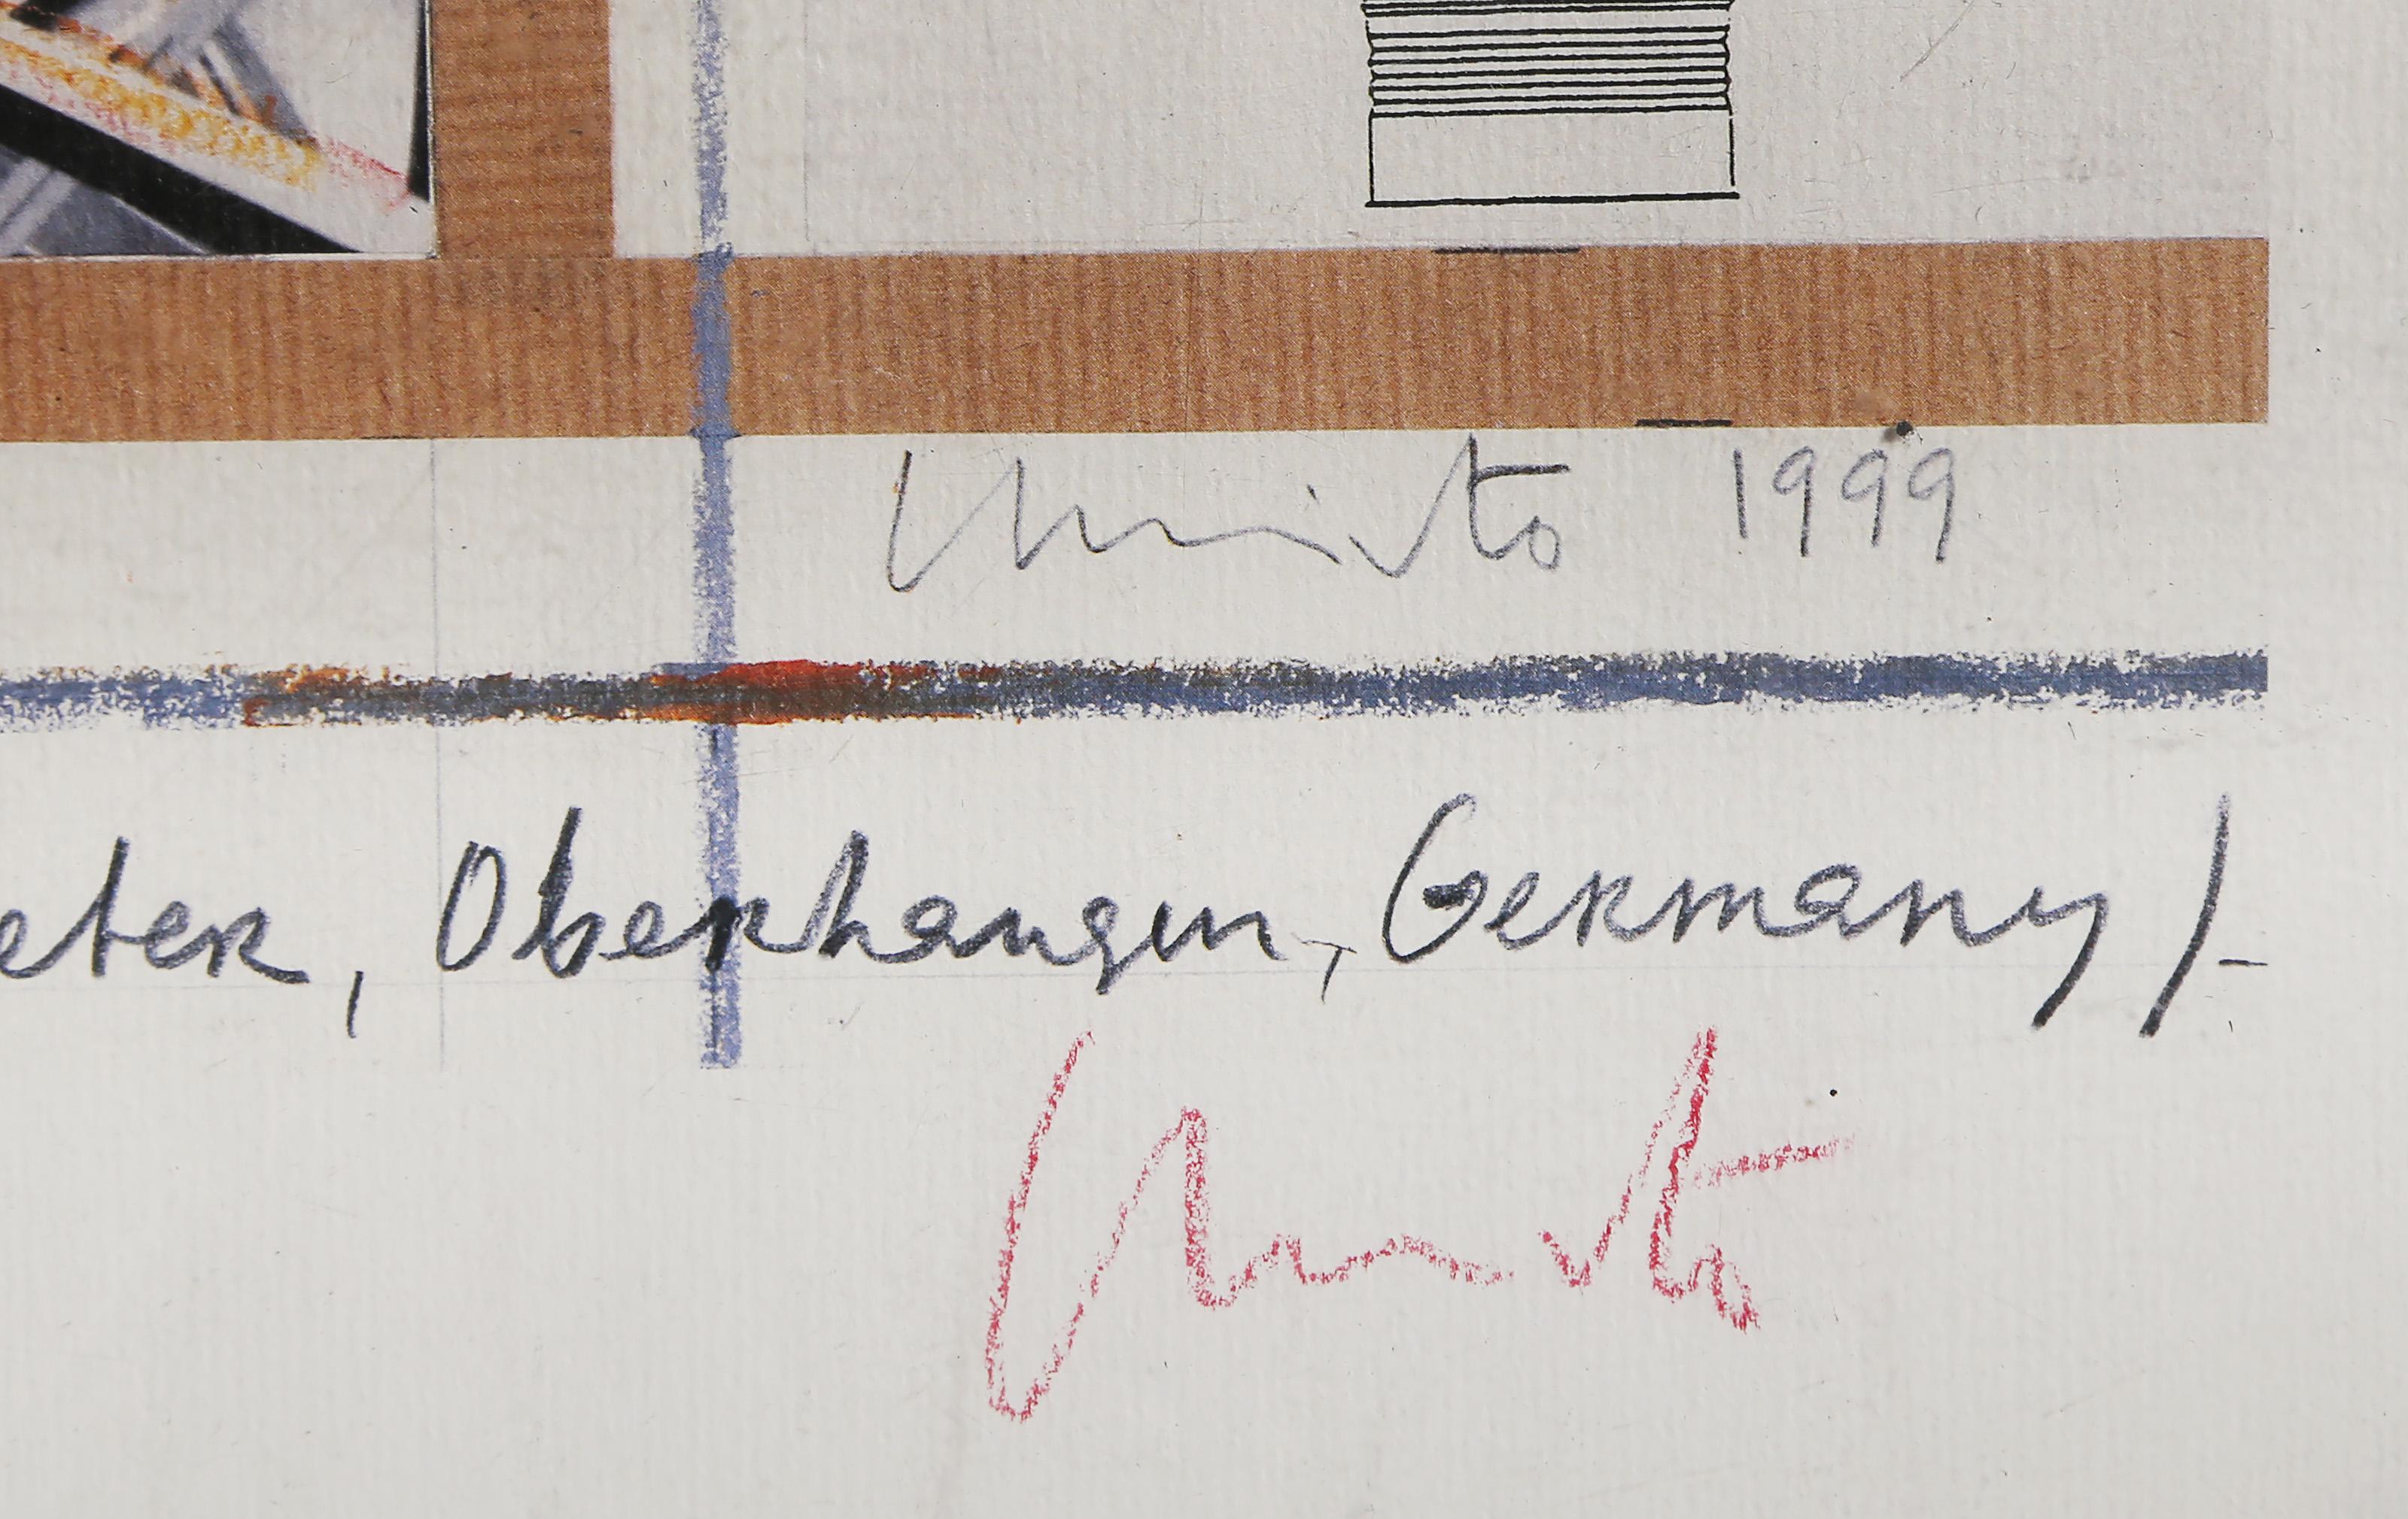 Christo 1999
eter, Oberhausen, Germany)-
Christo